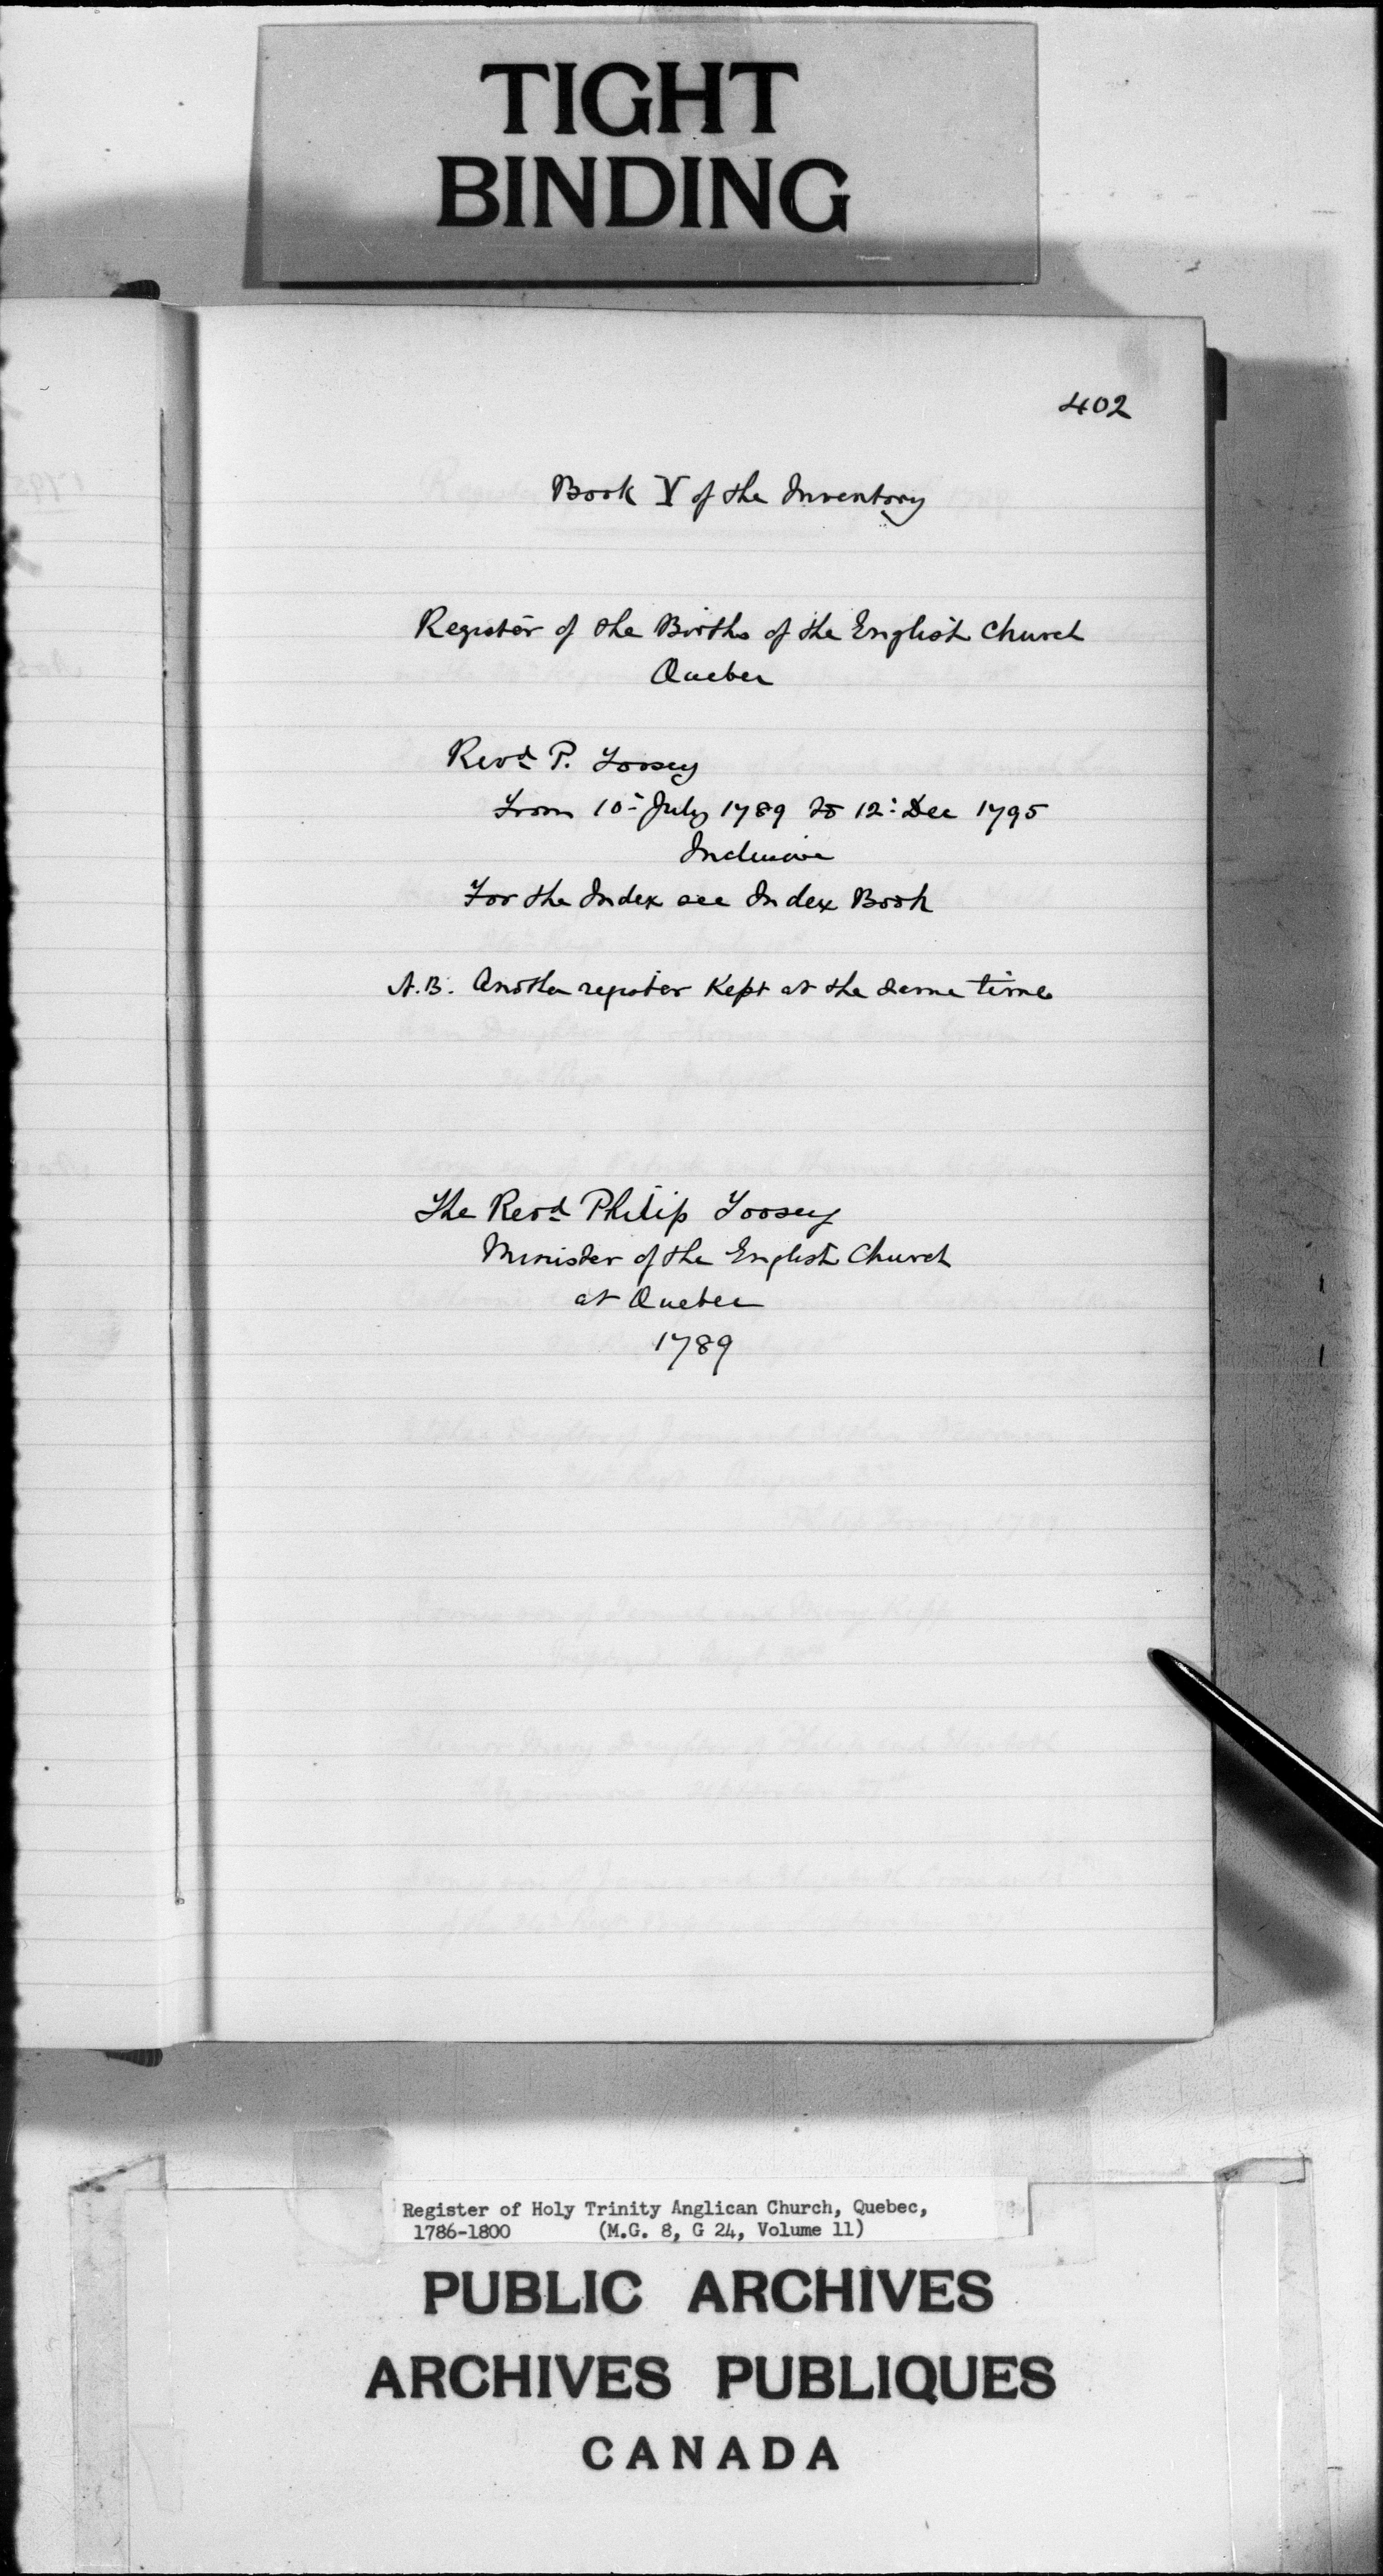 TIGHT
BINDING
402
Book V of the Inventory
Register of the Births of the English Church
Quebec
Revd P. Toosey
From 10th July 1789 to 12: Dec 1795
Inclusive
For the Index see Index Book
N.B. Another register Kept at the same time
The Revd Philip Toosey
Minister of the English Church
at Quebec
1789
Register of Holy Trinity Anglican Church, Quebec,
1786-1800 (M.G. 8, G 24, Volume 11)
PUBLIC ARCHIVES
ARCHIVES PUBLIQUES
CANADA